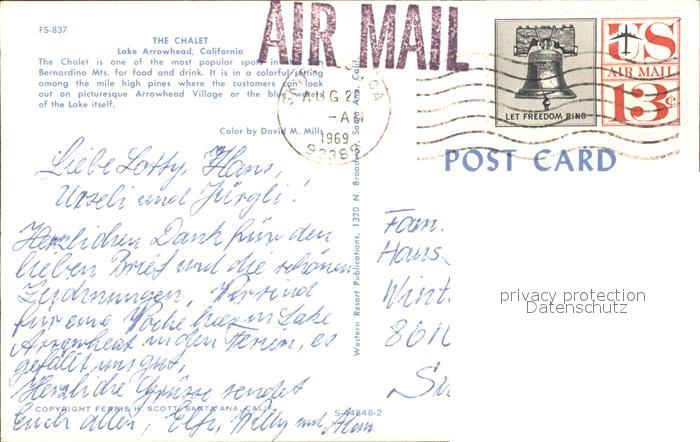 FS-837
THE CHALET
Lake Arrowhead, California
The Chalet is one of the most popular spots in the San
Bernardino Mts. for food and drink. It is in a colorful setting
among the mile high pines where the customers can look
out on picturesque Arrowhead Village or the blue waters
of the Lake itself.
Color by David M. Mills
AIR MAIL
AUG 2
-AM
1969
LET FREEDOM RING
US
AIR MAIL
13c
POST CARD
Liebe Lotty, Hans,
Urseli und Jürgli!
Herzlichen Dank für den
lieben Brief und die schönen
Zeichnungen. Wir sind
für eine Woche hier in Lake
Arrowhead in den Ferien, es
gefällt uns gut.
Herzliche Grüsse sendet
Euch allen, Elfi, Willy und Alan
Western Resort Publications, 1320 N. Broadway, Santa Ana, Calif.
Fam.
Hans
Wint
privacy protection
Datenschutz
COPYRIGHT FERRIS H. SCOTT, SANTA ANA, CALIF.
S-44848-2